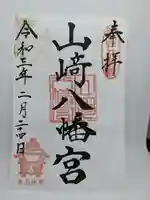 奉拝
山崎八幡宮
令和三年二月二十四日